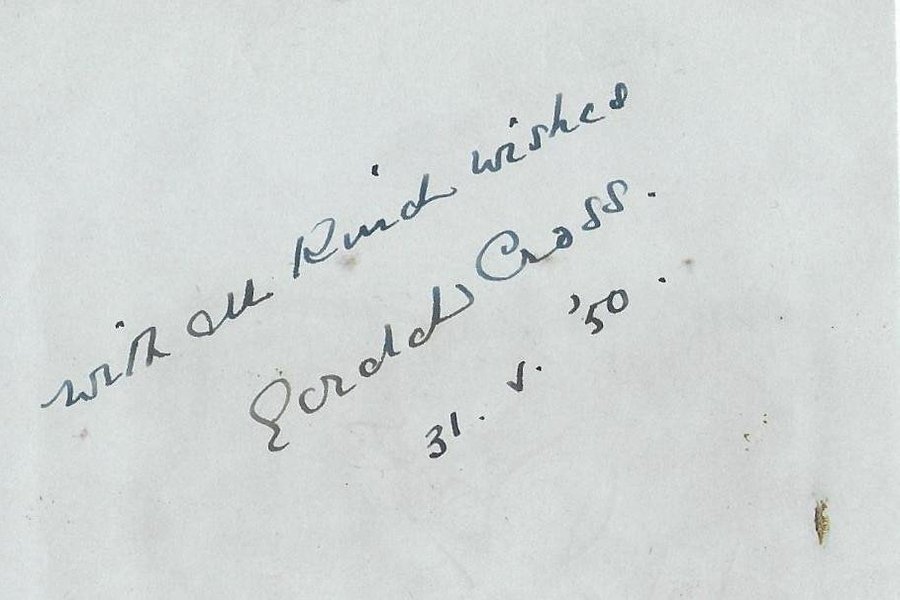 with all kind wishes
Gerald Cross.
31. V. '50.